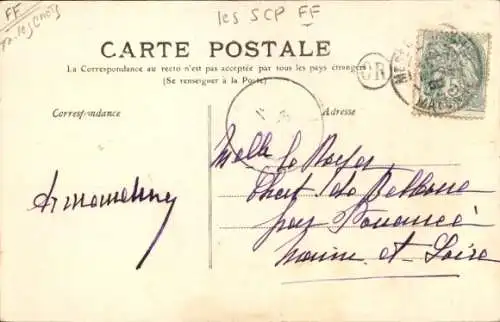 FF
les SCP FF
CARTE POSTALE
La Correspondance au recto n'est pas acceptée par tous les pays étrangers
(Se renseigner à la Poste)
OR
5
Correspondance
Adresse
Melle Le Royer
Chat de Bellevue
par Pouancé
Maine et Loire